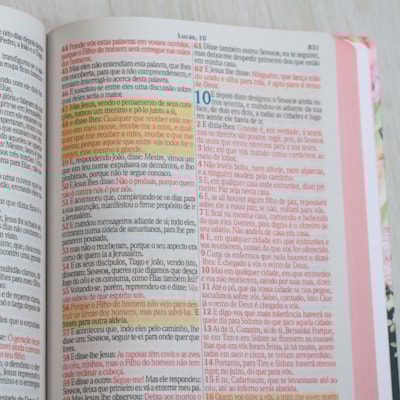 Lucas, 10
831
44 Ponde vós estas palavras em vossos ouvidos,
porque o Filho do homem será entregue nas mãos
dos homens.
45 Mas eles não entendiam esta palavra, que lhes
era encoberta, para que a não compreendessem; e
temiam interrogá-lo acerca desta palavra.
46 E suscitou-se entre eles uma discussão sobre
qual deles seria o maior.
47 Mas Jesus, vendo o pensamento de seus cora-
ções, tomou um menino e pô-lo junto a si,
48 e disse-lhes: Qualquer que receber este me-
nino em meu nome, recebe-me a mim, e qual-
quer que me receber a mim, recebe o que me
enviou; porque aquele que entre vós todos for o
menor, esse mesmo é grande.
49 E, respondendo João, disse: Mestre, vimos um
em teu nome expulsava os demônios, e lho
proibimos, porque não te segue conosco.
50 E Jesus lhes disse: Não o proibais, porque quem
não é contra nós é por nós.
51 E aconteceu que, completando-se os dias para
a sua assunção, manifestou o firme propósito de ir
a Jerusalém.
52 E mandou mensageiros adiante de si; indo eles,
entraram numa aldeia de samaritanos, para lhe
prepararem pousada,
53 mas não o receberam, porque o seu aspecto era
como de quem ia a Jerusalém.
54 E os seus discípulos, Tiago e João, vendo isto,
disseram: SENHOR, queres que digamos que desça
fogo do céu e os consuma, como Elias também fez?
55 Voltando-se, porém, repreendeu-os e disse: Vós
não sabeis de que espírito sois.
56 Porque o Filho do homem não veio para des-
truir as almas dos homens, mas para salvá-las. E
foram para outra aldeia.
57 E aconteceu que, indo eles pelo caminho, lhe
disse um: SENHOR, seguir-te-ei para onde quer que
fores.
58 E disse-lhe Jesus: As raposas têm covis e as aves
do céu, ninhos, mas o Filho do homem não tem
onde reclinar a cabeça.
59 E disse a outro: Segue-me! Mas ele respondeu:
SENHOR, deixa que primeiro eu vá a enterrar meu pai.
Mas Jesus lhe observou: Deixa aos mortos o
61 Disse também outro: SENHOR, eu te seguirei,
mas deixa-me despedir primeiro dos que estão
em minha casa.
62 E Jesus lhe disse: Ninguém, que lança mão
do arado e olha para trás, é apto para o reino
de Deus.
10 E depois disto designou o SENHOR ainda ou-
tros setenta, e mandou-os adiante da sua
face, de dois em dois, a todas as cidades e luga-
res aonde ele havia de ir.
2 E dizia-lhes: Grande é, em verdade, a seara,
mas os obreiros são poucos; rogai, pois, ao Senhor
da seara que envie obreiros para a sua seara.
3 Ide; eis que vos mando como cordeiros ao meio
de lobos.
4 Não leveis bolsa, nem alforje, nem alparcas;
e a ninguém saudeis pelo caminho.
5 E, em qualquer casa onde entrardes, dizei pri-
meiro: Paz seja nesta casa.
6 E, se ali houver algum filho de paz, repousará
sobre ele a vossa paz; se não, voltará para vós.
7 E ficai na mesma casa, comendo e bebendo
do que eles tiverem, pois digno é o obreiro de
seu salário. Não andeis de casa em casa.
8 E, em qualquer cidade em que entrardes e
vos receberem, comei do que vos for oferecido.
9 Curai os enfermos que nela houver e dizei-
lhes: É chegado a vós o reino de Deus.
10 Mas em qualquer cidade, em que entrardes
e vos não receberem, saindo por suas ruas, dizei:
11 Até o pó, que da vossa cidade se nos pegou,
sacudimos sobre vós. Sabei, contudo, isto: Que
já o reino de Deus é chegado a vós.
12 E digo-vos que mais tolerância haverá na-
quele dia para Sodoma do que para aquela cidade.
13 Ai de ti, Corazim, ai de ti, Betsaida! Porque,
se em Tiro e em Sidom se fizessem as maravi-
lhas que em vós foram feitas, já há muito, assen-
tadas em saco e cinza, se teriam arrependido.
14 Portanto, para Tiro e Sidom haverá menos
rigor, no juízo, do que para vós.
15 E tu, Cafarnaum, que te levantaste até ao
céu, até ao inferno serás abatida.
16 Quem vos ouve a vós, a mim me ouve; quem